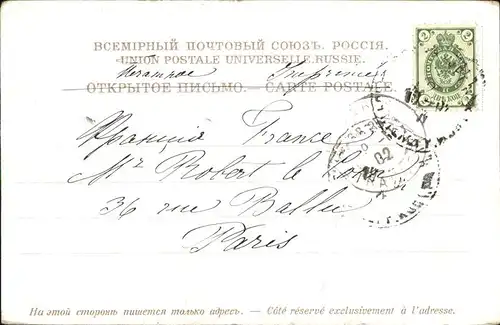 ВСЕМІРНЫЙ ПОЧТОВЫЙ СОЮЗЪ. РОССІЯ.
UNION POSTALE UNIVERSELLE. RUSSIE.
Печатное Imprimés
ОТКРЫТОЕ ПИСЬМО. — CARTE POSTALE
Франція France
Mr Robert le
36 rue Ballu
Paris
На этой сторонѣ пишется только адресъ. — Côté réservé exclusivement à l'adresse.
2 2
02